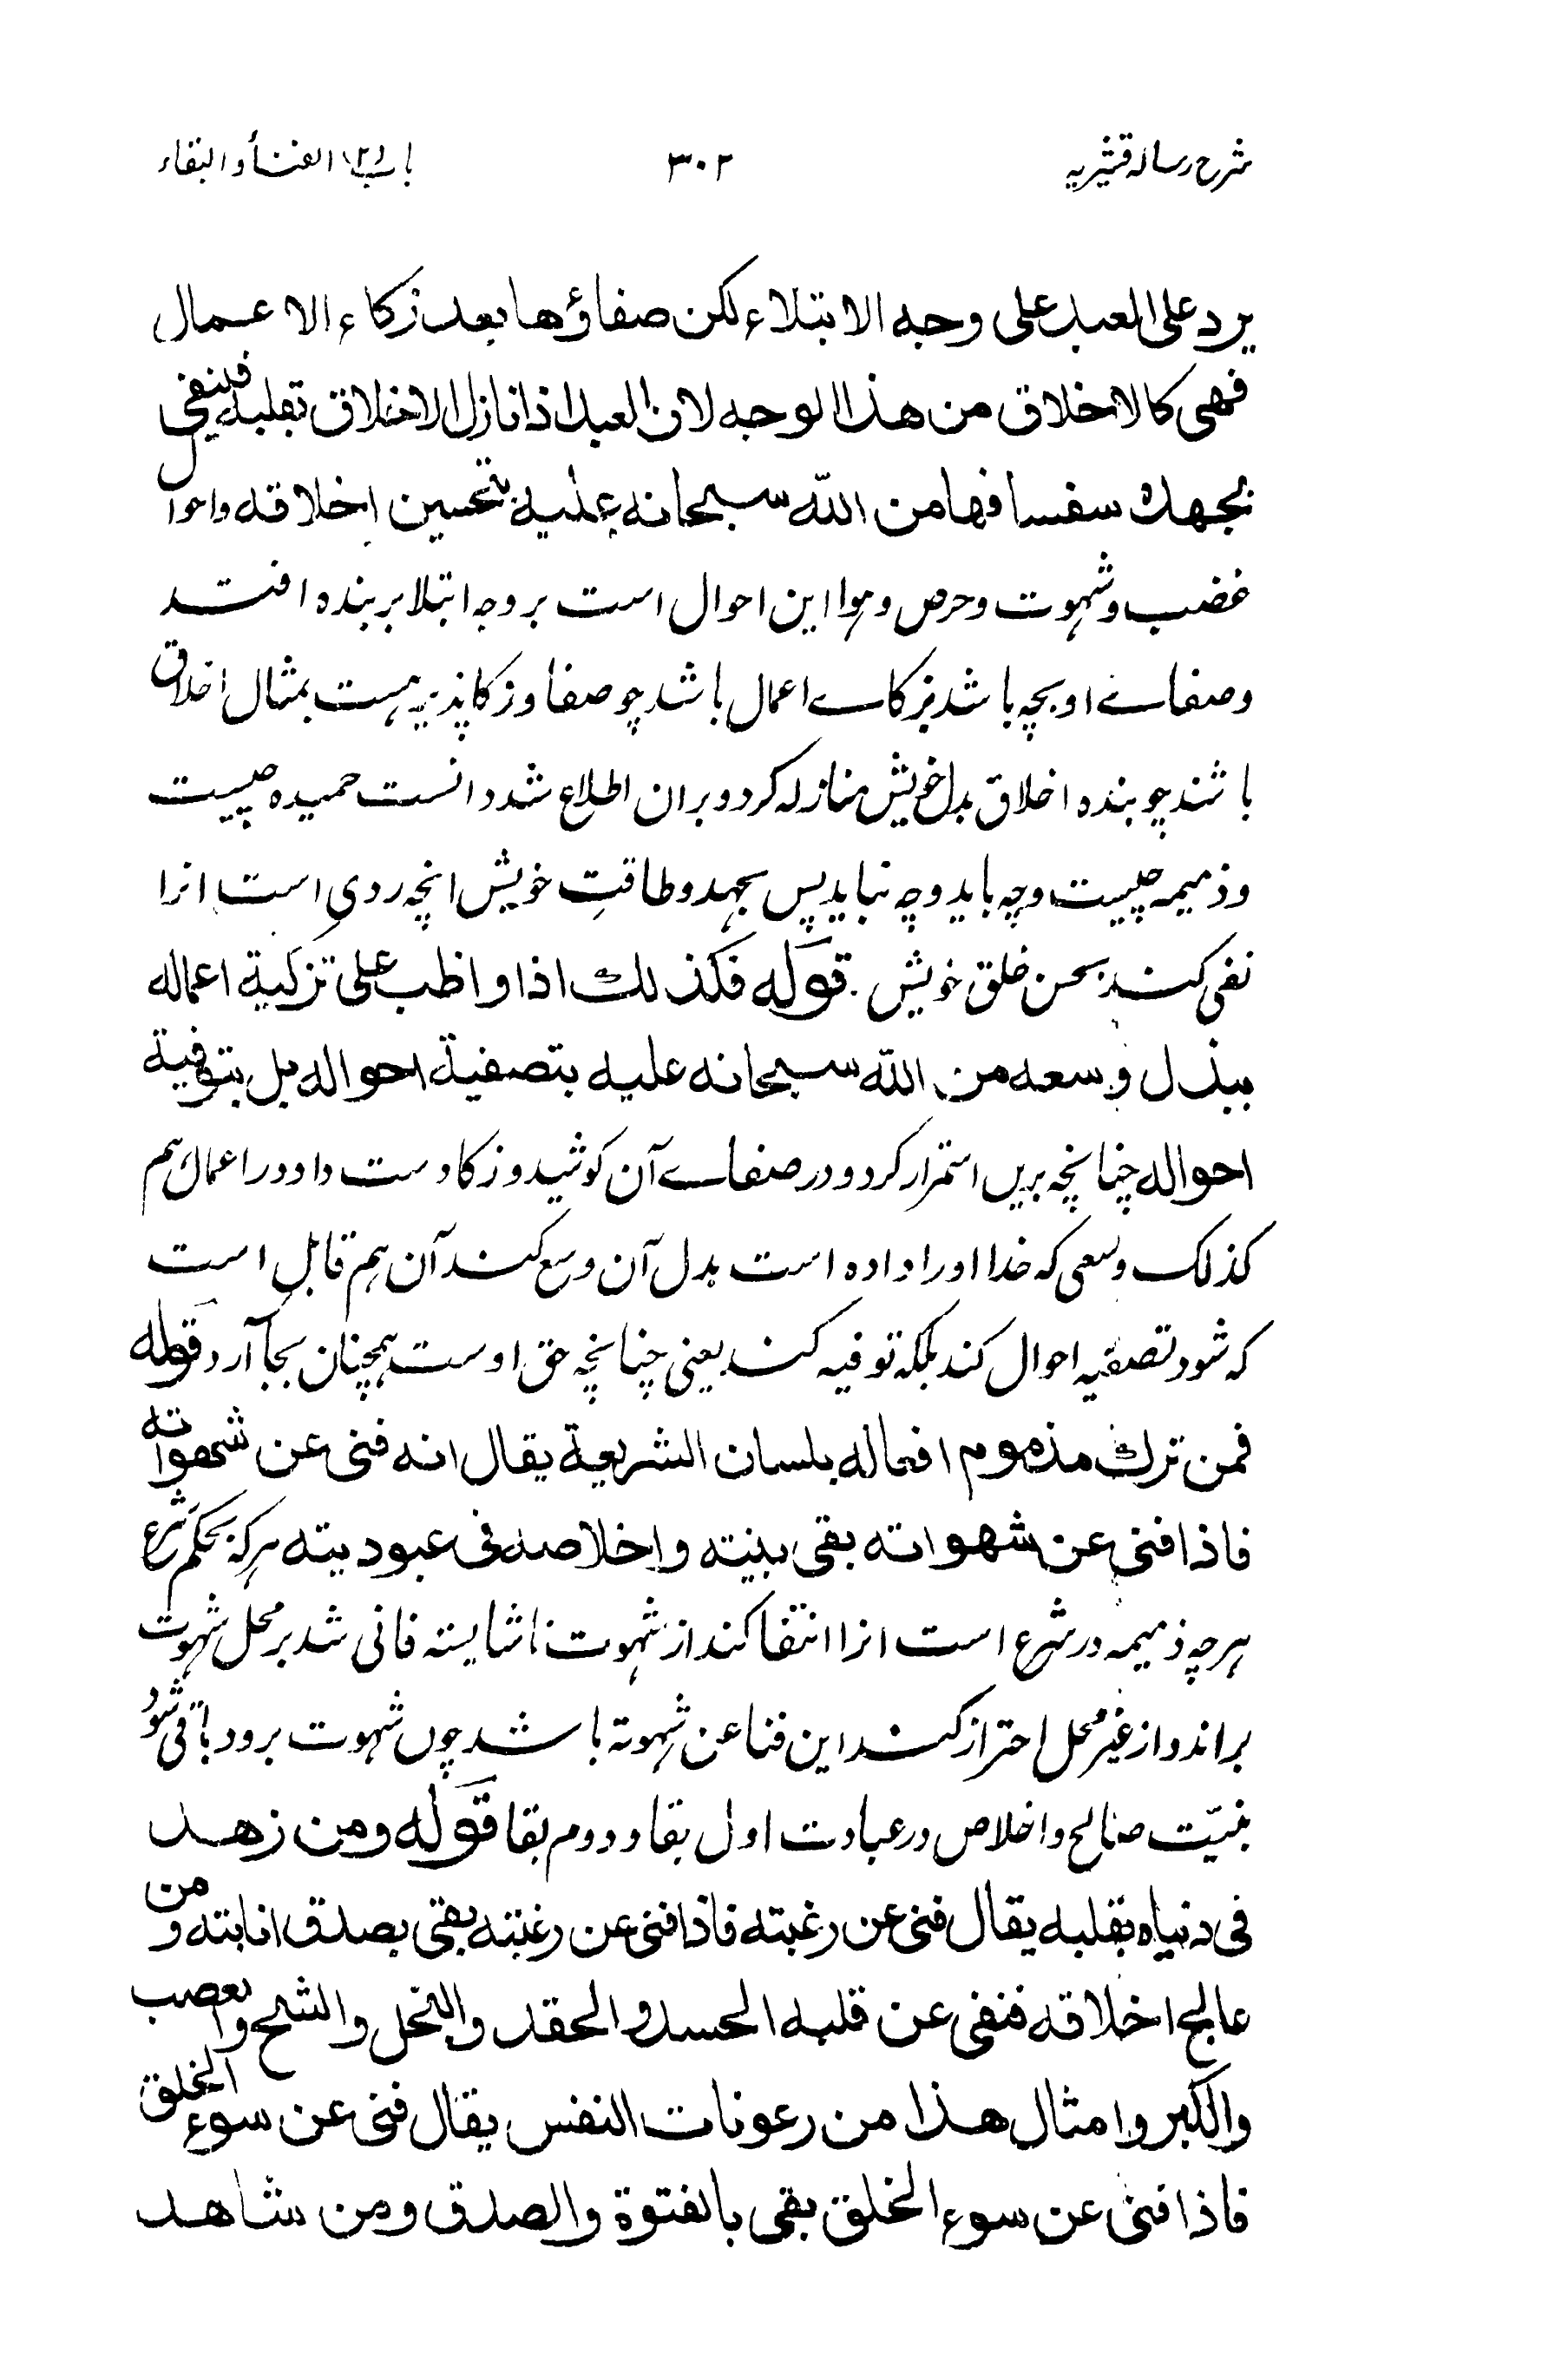 شرح رسالہ قشیریہ ۳۰۲ باب الفناء والبقاء
یرد علی العبد علی وجه الابتلاء لکن صفاؤها بعد زکاء الاعمال
فهی کالاخلاق من هذا الوجه لان العبد اذا نازل الاخلاق بقلبه فینفی
بجهده سفسافها من الله سبحانه علیه بتحسین اخلاقه واحوال
غضب و شهوت و حرص و هوا این احوال است بر وجه ابتلا بر بنده افتد
وصفاے او بچه باشد بزکاے اعمال باشد چو صفا و زکا پذیر هست بمثال اخلاق
باشند چو بنده اخلاق بدل خویش منازله کرد و بران اطلاع شد دانست حمیده چیست
و ذمیمه چیست و چه باید و چه نباید پس بجهد و طاقتِ خویش انچه ردی است انرا
نفی کند بحسن خلق خویش. قوله فکذلك اذا واظب علی تزکیة اعماله
ببذل وسعه من الله سبحانه علیه بتصفیة احواله بل بتوفیة
احواله چنانچه بریں استمرار کرد و در صفاے آن کوشید و زکا دست داد در اعمال هم
کذلک وسعی که خدا او را داده است بدل آن وسع کند آن هم قابل است
که شود تصفیه احوال کند بلکه توفیه کند یعنی چنانچه حق اوست همچنان بجا آرد قوله
فمن ترك مذموم افعاله بلسان الشریعة یقال انه فنی عن شهواته
فاذا فنی عن شهواته بقی بنیته واخلاصه فی عبودیته هرکه بحکم شرع
هرچه ذمیمه در شرع است انرا انتفا کند از شهوت ناشایسته فانی شد بر محل شهوت
براند و از غیر محل احتراز کند این فنا عن شهوته باشد چوں شهوت برود باقی شود
بنیّت صالح و اخلاص در عبادت اول بقا و دوم بقا قوله ومن زهد
فی دنیاه بقلبه یقال فنی عن رغبته فاذا فنی عن رغبته بقی بصدق انابته ومن
عالج اخلاقه فنفی عن قلبه الحسد والحقد والبخل والشح والعصب
والکبر وامثال هذا من رعونات النفس یقال فنی عن سوء الخلق
فاذا فنی عن سوء الخلق بقی بالفتوة والصدق ومن شاهد